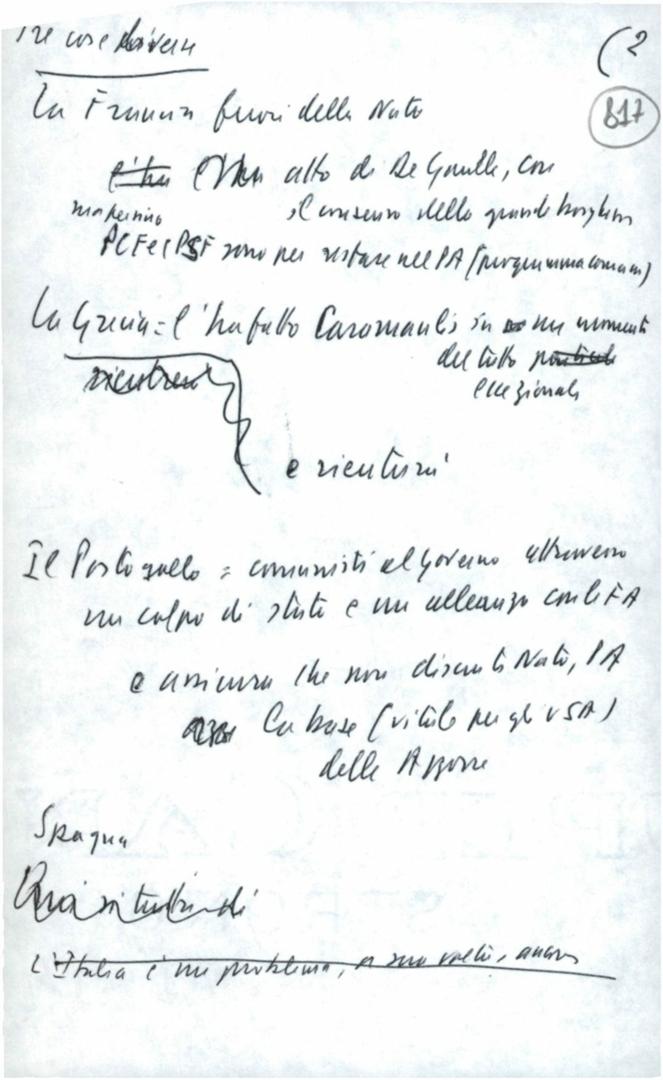 Tre cose diverse
(2
817
La Francia fuori della Nato
è un atto di De Gaulle, con
il consenso della grande borghesia
ma persino
PCF e PSF sono per restare nell PA (programma comune)
La Grecia = l'ha fatto Caromanlis in un momento
del tutto
eccezionale
rientrerà
e rientrerà
Il Portogallo = comunisti al governo attraverso
un colpo di stato e un alleanza con le FA
e assicura che non discute Nato, PA
la base (vitale per gli USA)
delle Azzorre
Spagna
Quasi tutti
L'Italia è un problema, a sua volta, ancora